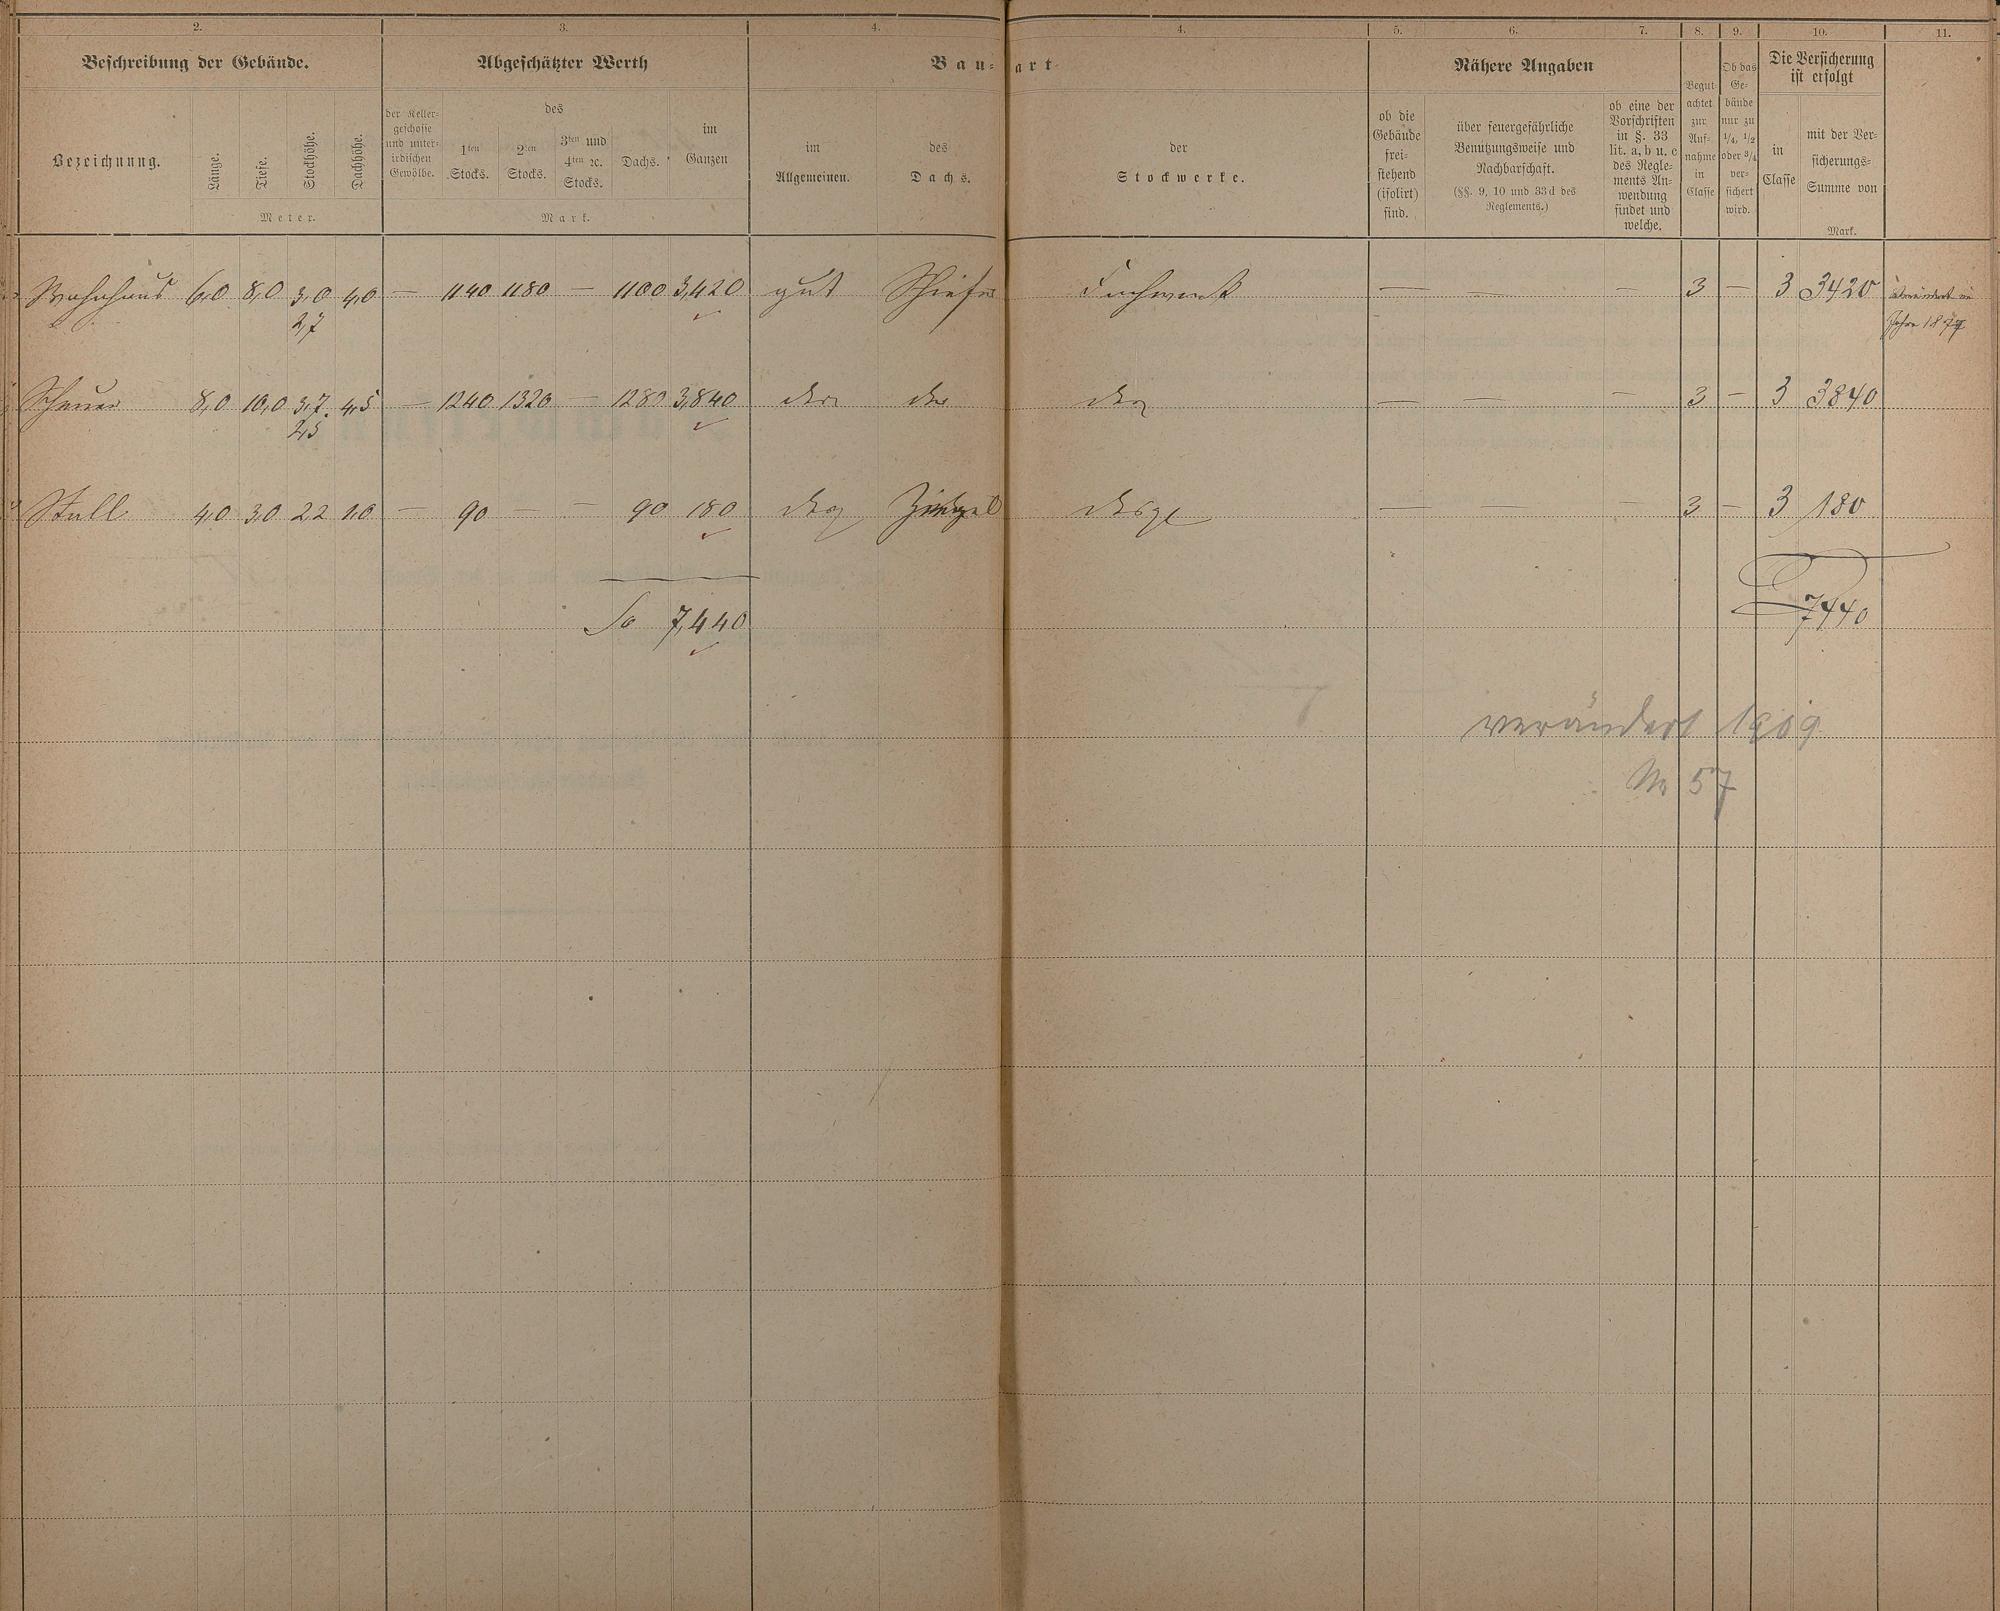 2. 3. 4. 4. 5. 6. 7. 8. 9. 10. 11.
Beschreibung der Gebäude. Abgeschätzter Werth Bau- art Nähere Angaben
Bezeichnung. Länge. Tiefe. Stockhöhe. Dachhöhe.
Meter.
der Keller-
geschosse
und unter-
irdischen
Gewölbe.
des
1ten
Stocks.
2ten
Stocks.
3ten und
4ten ec.
Stocks.
Dachs.
im
Ganzen
Mark.
im
Allgemeinen.
des
Dachs.
der
Stockwerke.
ob die
Gebäude
frei-
stehend
(isolirt)
sind.
über feuergefährliche
Benützungsweise und
Nachbarschaft.
(§§. 9, 10 und 33d des
Reglements.)
ob eine der
Vorschriften
in §. 33
lit. a, b u. c
des Regle-
ments An-
wendung
findet und
welche.
Begut-
achtet
zur
Auf-
nahme
in
Classe
Ob das
Ge-
bäude
nur zu
1/4, 1/2
oder 3/4
ver-
sichert
wird.
Die Versicherung
ist erfolgt
in
Classe
mit der Ver-
sicherungs-
Summe von
Mark.
Wohnhaus 6,0 8,0 3,0 4,0 — 1140 1180 — 1100 3,420 gut Schiefer Fachwerk — — — 3 — 3 3420
2,7
Jahre 1877
Scheuer 8,0 10,0 3,7 4,5 — 1240 1320 — 1280 3,840 — — — 3 — 3 3840
2,5
Stall 4,0 3,0 2,2 1,0 — 90 — — 90 180 Ziegel desgl — — — 3 — 3 180
Sa 7,440 7440
verändert 1909
No 57